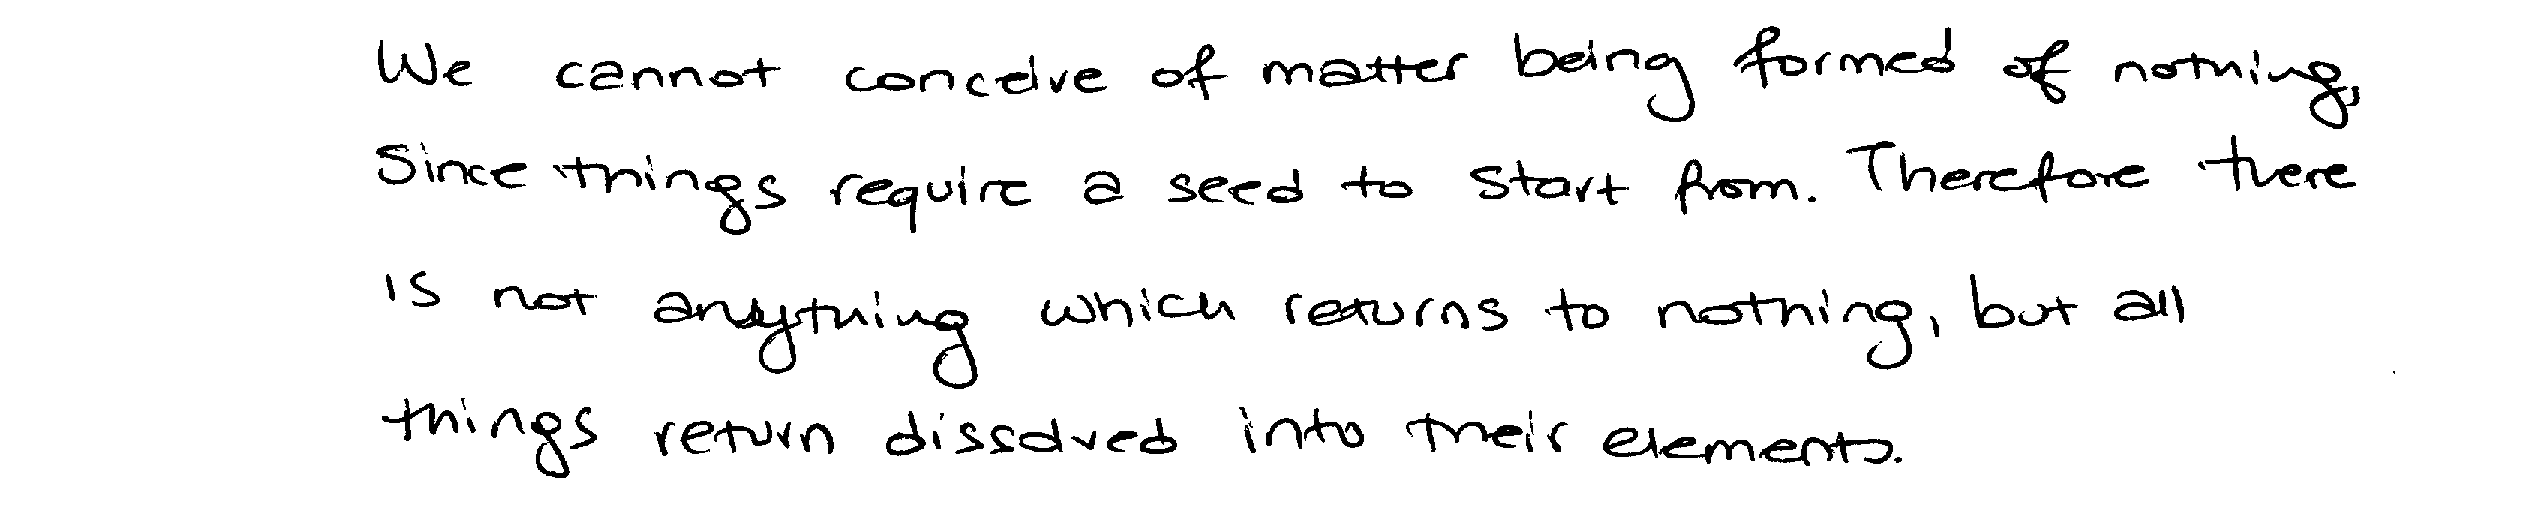 We cannot conceive of matter being formed of nothing,
Since things require a seed to start from. Therefore there
is not anything which returns to nothing, but all
things return dissolved into their elements.